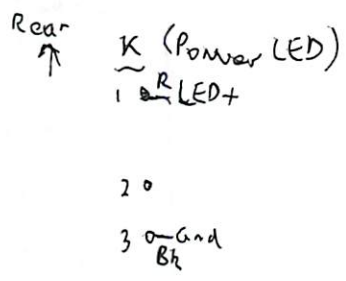 Rear
K (Power LED)
1 R LED+
2
3 Gnd
Bk